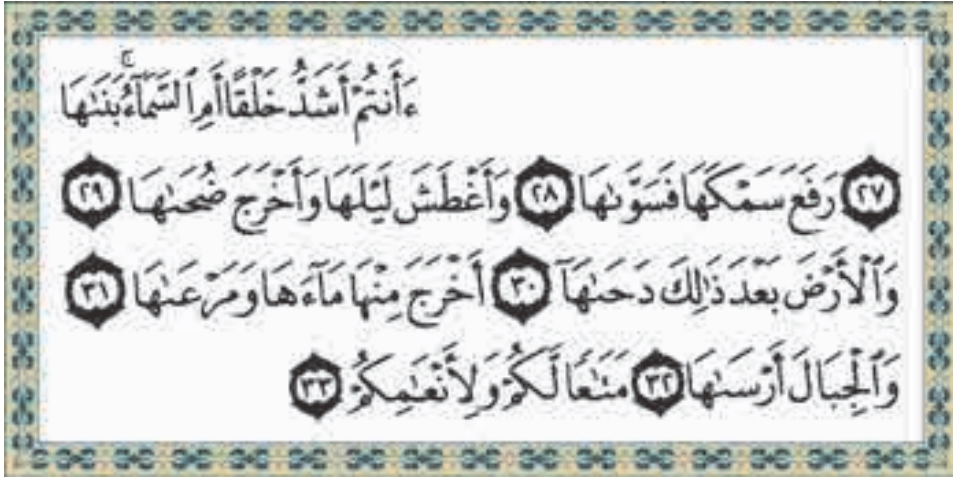 ءَأَنتُمْ أَشَدُّ خَلْقًا أَمِ ٱلسَّمَآءُ ۚ بَنَىٰهَا
٢٧ رَفَعَ سَمْكَهَا فَسَوَّىٰهَا ٢٨ وَأَغْطَشَ لَيْلَهَا وَأَخْرَجَ ضُحَىٰهَا ٢٩
وَٱلْأَرْضَ بَعْدَ ذَٰلِكَ دَحَىٰهَآ ٣٠ أَخْرَجَ مِنْهَا مَآءَهَا وَمَرْعَىٰهَا ٣١
وَٱلْجِبَالَ أَرْسَىٰهَا ٣٢ مَتَـٰعًا لَّكُمْ وَلِأَنْعَـٰمِكُمْ ٣٣